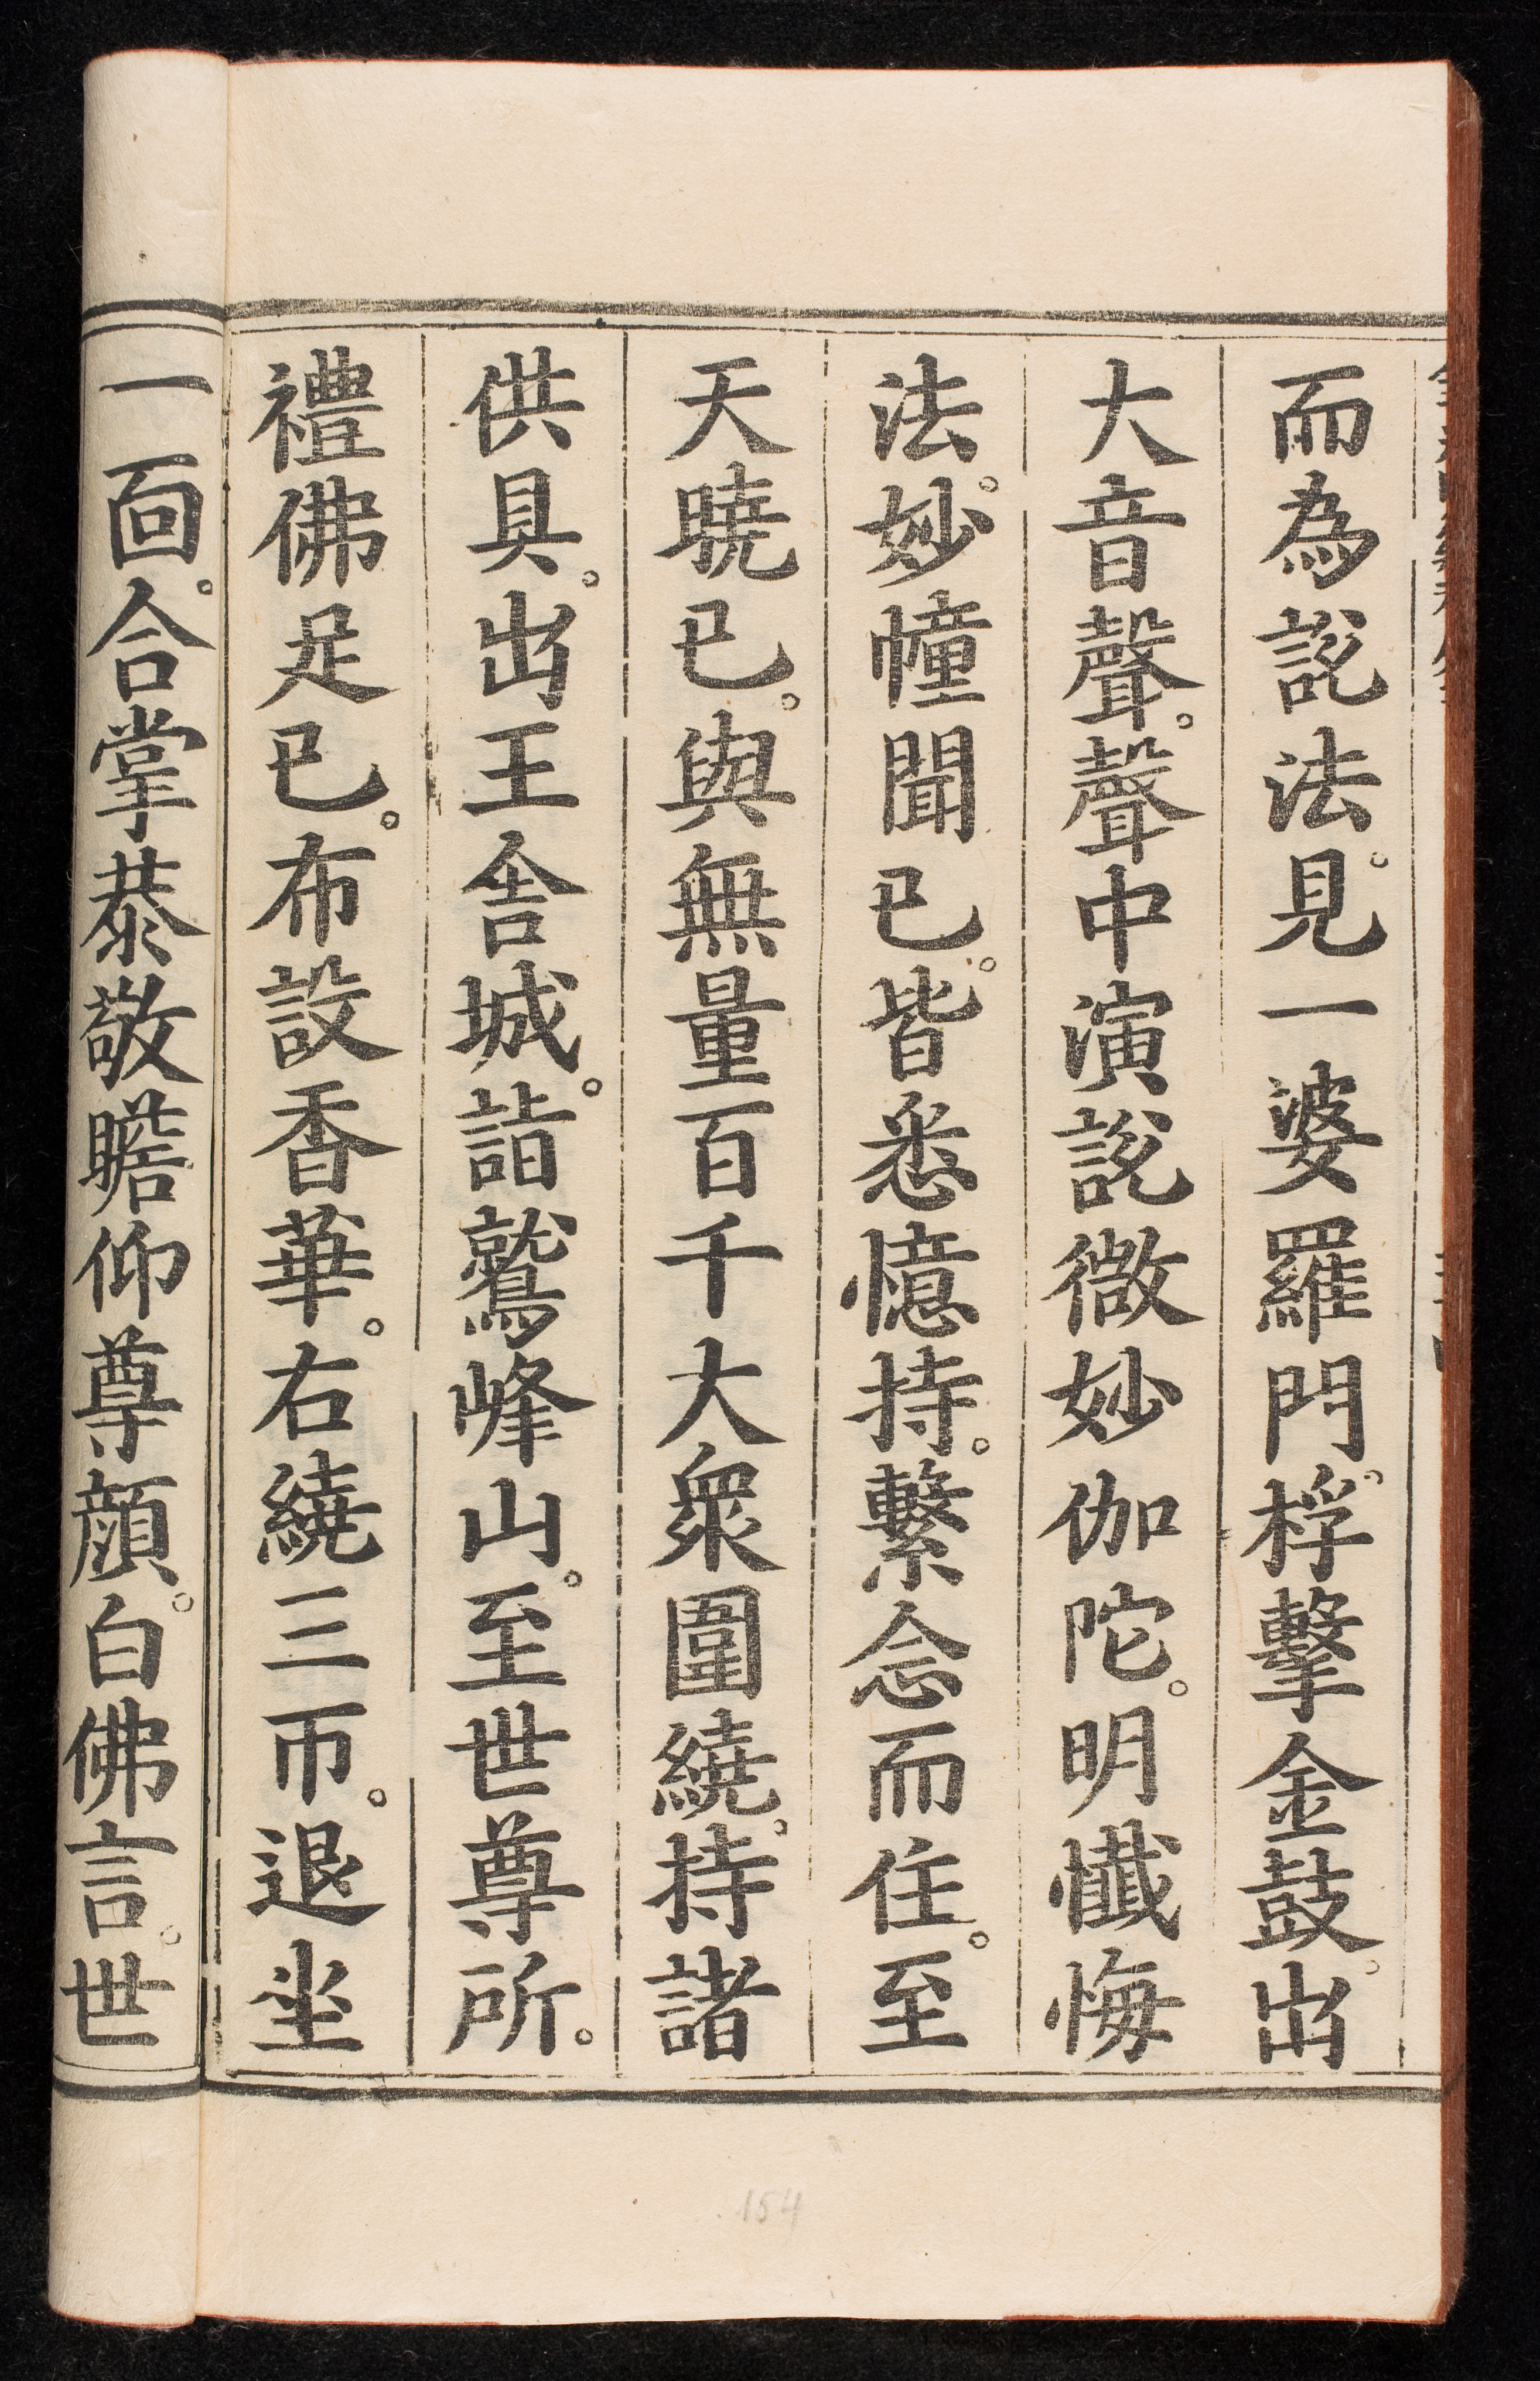 而為說法。見一婆羅門。桴擊金鼓。出
大音聲。聲中演說微妙伽陀。明懺悔
法。妙幢聞已。皆悉憶持。繫念而住。至
天曉已。與無量百千大眾圍繞。持諸
供具。出王舍城。詣鷲峰山。至世尊所。
禮佛足已。布設香華。右繞三帀。退坐
一面。合掌恭敬瞻仰尊顏。白佛言。世
154